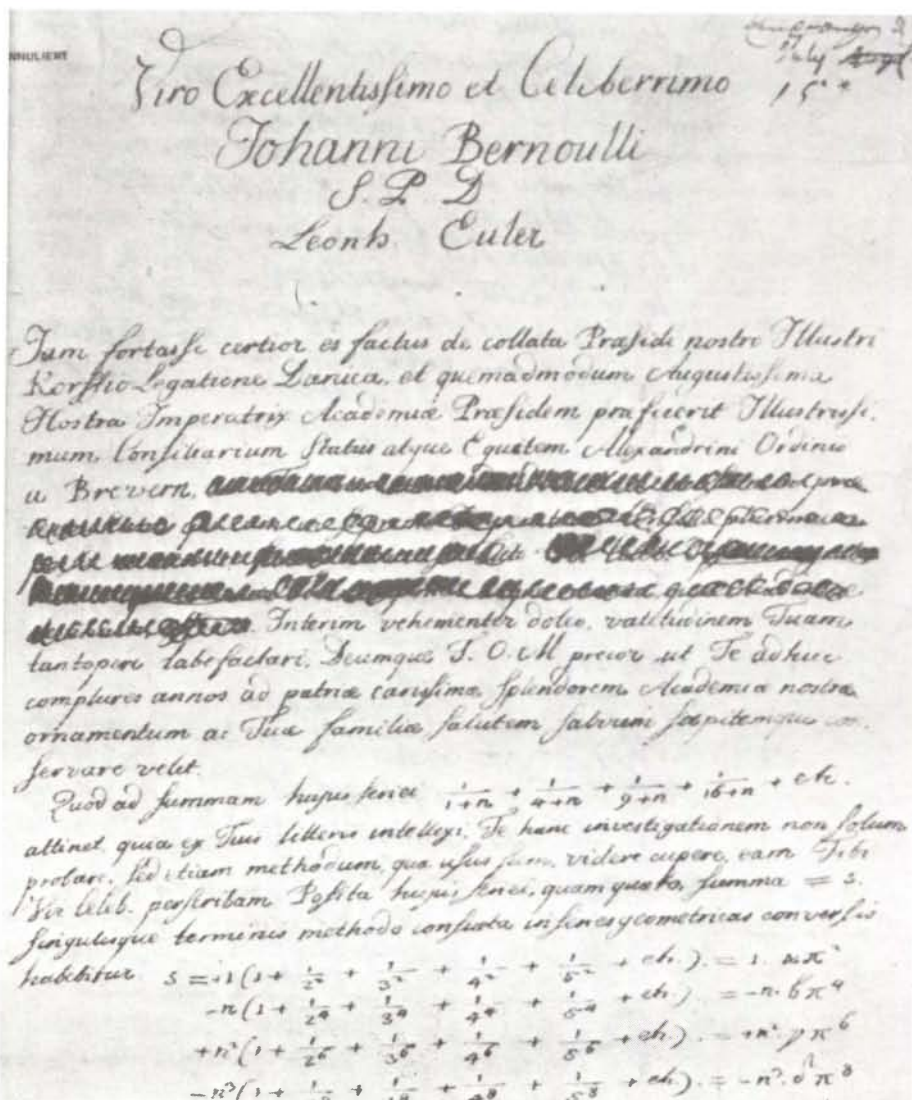 Viro Excellentissimo et Celeberrimo
Johanni Bernoulli
S. P. D.
Leonh. Euler
Jam fortasse certior es factus de collata Præsidi nostro Illustri
Korffio Legatione Danica, et quemadmodum Augustissima
Nostra Imperatrix Academiæ Præsidem præfecerit Illustrissi-
mum Consiliarium Status atque Equitem Alexandrini Ordinis
a Brevern.
Interim vehementer doleo, valetudinem Tuam
tantopere labefactari, Deumque T. O. M precor ut Te adhuc
complures annos ad patriæ carissimæ splendorem Academiæ nostræ
ornamentum ac Tuæ familiæ salutem salvum sospitemque con-
servare velit.
Quod ad summam hujus seriei 1/(1+n) + 1/(4+n) + 1/(9+n) + 1/(16+n) + etc.
attinet, quia ex Tuis litteris intellexi, Te hanc investigationem non solum
probare, sed etiam methodum, qua usus sum, videre cupere, eam Tibi
Vir Celeb. perscribam. Posita hujus seriei, quam quæro, summa = s.
singulisque terminis methodo consueta in series geometricas conversis
habebitur s = +1(1 + 1/2² + 1/3² + 1/4² + 1/5² + etc.) = 1. απ²
-n(1 + 1/2⁴ + 1/3⁴ + 1/4⁴ + 1/5⁴ + etc.) = -n. βπ⁴
+n²(1 + 1/2⁶ + 1/3⁶ + 1/4⁶ + 1/5⁶ + etc.) = +n². γπ⁶
-n³(1 + 1/2⁸ + 1/3⁸ + 1/4⁸ + 1/5⁸ + etc.) = -n³. δπ⁸